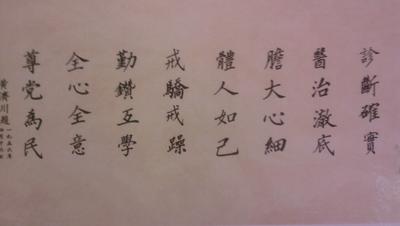 診斷確實
醫治澈底
膽大心細
體人如己
戒驕戒躁
勤鑽互學
全心全意
尊党為民
黃濟川題